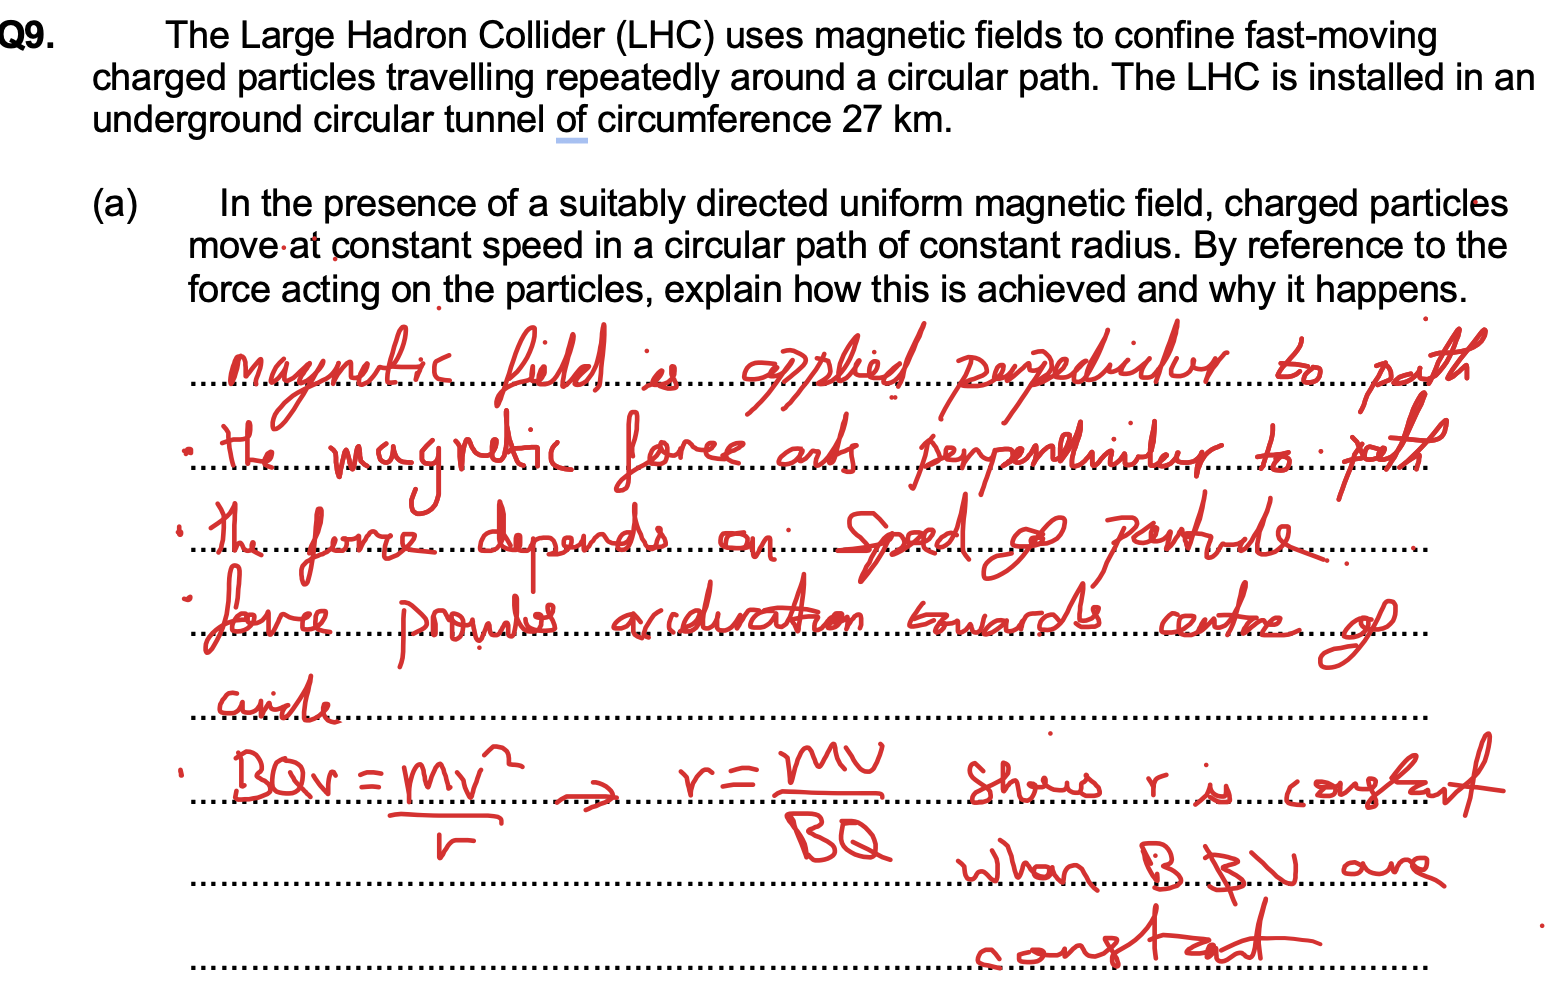 Q9. The Large Hadron Collider (LHC) uses magnetic fields to confine fast-moving
charged particles travelling repeatedly around a circular path. The LHC is installed in an
underground circular tunnel of circumference 27 km.
(a) In the presence of a suitably directed uniform magnetic field, charged particles
move at constant speed in a circular path of constant radius. By reference to the
force acting on the particles, explain how this is achieved and why it happens.
magnetic field is applied perpedicular to path
· the magnetic force acts perpendicular to path
· the force depends on speed of particle
· force provides acceleration towards centre of
circle
· BQv = mv²/r → r = mv/BQ shows r is constant
when B & V are
constant